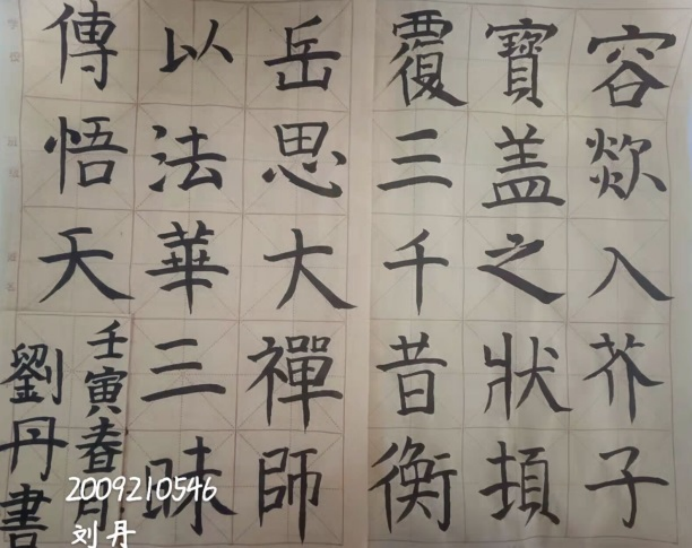 容欻入芥子
寶盖之狀頓
覆三千昔衡
岳思大禪師
以法華三昧
傳悟天
壬寅春月
劉丹書
2009210546
刘丹